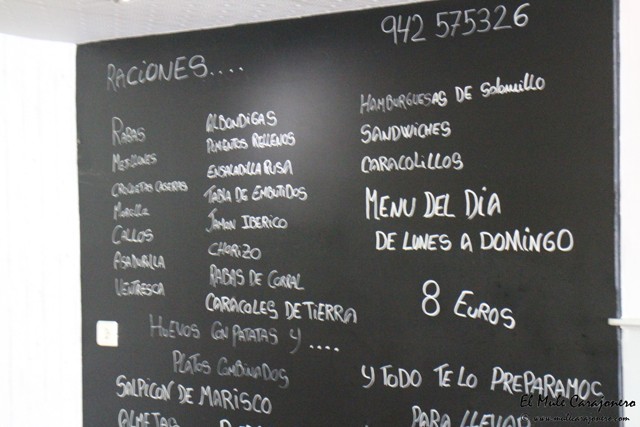 942 575326
RACIONES....
RABAS
MEJILLONES
CROQUETAS CASERAS
MORCILLA
CALLOS
ASADURILLA
VENTRESCA
ALBONDIGAS
PIMIENTOS RELLENOS
ENSALADILLA RUSA
TABLA DE EMBUTIDOS
JAMON IBERICO
CHORIZO
RABAS DE CORRAL
CARACOLES DE TIERRA
HUEVOS CON PATATAS Y ....
PLATOS COMBINADOS
SALPICON DE MARISCO
ALMEJAS
HAMBURGUESAS DE Solomillo
SANDWICHES
CARACOLILLOS
MENU DEL DIA
DE LUNES A DOMINGO
8 EUROS
Y TODO TE LO PREPARAMOS
PARA LLEVAR
El Mule Carajonero
www.mulecarajonero.com